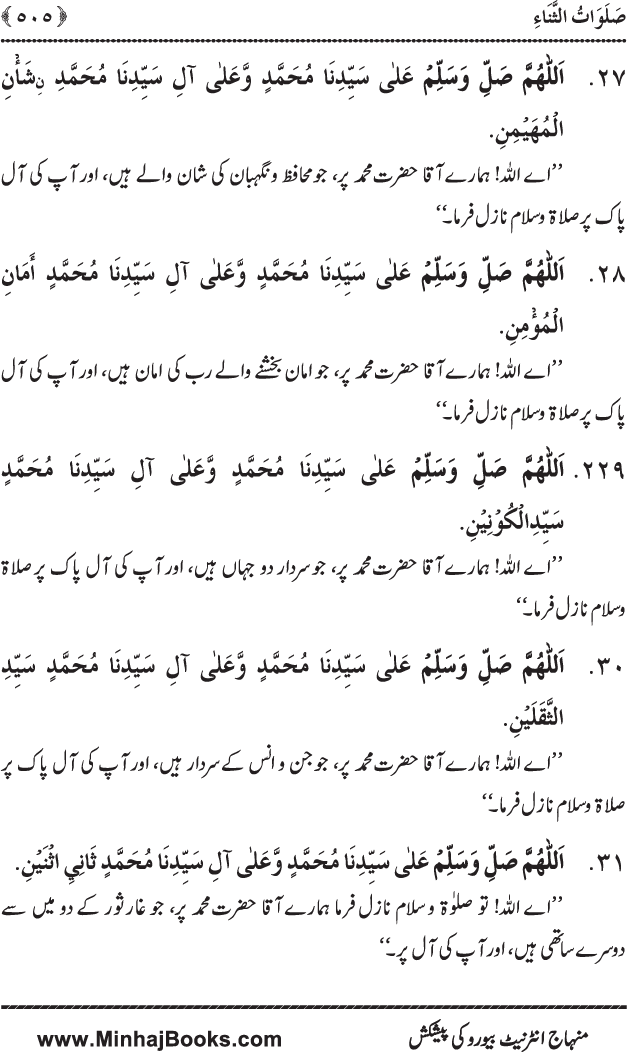 صَلَوَاتُ الثَّنَاءِ ﴿٥٠٥﴾
٢٧. اَللّٰهُمَّ صَلِّ وَسَلِّمْ عَلٰی سَيِّدِنَا مُحَمَّدٍ وَّعَلٰی آلِ سَيِّدِنَا مُحَمَّدِ نِ شَأْنِ
الْمُهَيْمِنِ.
’’اے اللہ! ہمارے آقا حضرت محمد پر، جو محافظ و نگہبان کی شان والے ہیں، اور آپ کی آل
پاک پر صلاۃ وسلام نازل فرما۔‘‘
٢٨. اَللّٰهُمَّ صَلِّ وَسَلِّمْ عَلٰی سَيِّدِنَا مُحَمَّدٍ وَّعَلٰی آلِ سَيِّدِنَا مُحَمَّدٍ أَمَانِ
الْمُؤْمِنِ.
’’اے اللہ! ہمارے آقا حضرت محمد پر، جو امان بخشنے والے رب کی امان ہیں، اور آپ کی آل
پاک پر صلاۃ وسلام نازل فرما۔‘‘
٢٢٩. اَللّٰهُمَّ صَلِّ وَسَلِّمْ عَلٰی سَيِّدِنَا مُحَمَّدٍ وَّعَلٰی آلِ سَيِّدِنَا مُحَمَّدٍ
سَيِّدِالْكُوْنِيْنِ.
’’اے اللہ! ہمارے آقا حضرت محمد پر، جو سردار دو جہاں ہیں، اور آپ کی آل پاک پر صلاۃ
وسلام نازل فرما۔‘‘
٣٠. اَللّٰهُمَّ صَلِّ وَسَلِّمْ عَلٰی سَيِّدِنَا مُحَمَّدٍ وَّعَلٰی آلِ سَيِّدِنَا مُحَمَّدٍ سَيِّدِ
الثَّقَلَيْنِ.
’’اے اللہ! ہمارے آقا حضرت محمد پر، جو جن و انس کے سردار ہیں، اور آپ کی آل پاک پر
صلاۃ وسلام نازل فرما۔‘‘
٣١. اَللّٰهُمَّ صَلِّ وَسَلِّمْ عَلٰی سَيِّدِنَا مُحَمَّدٍ وَّعَلٰی آلِ سَيِّدِنَا مُحَمَّدٍ ثَانِيِ اثْنَيْنِ.
’’اے اللہ! تو صلوٰۃ و سلام نازل فرما ہمارے آقا حضرت محمد پر، جو غار ثور کے دو میں سے
دوسرے ساتھی ہیں، اور آپ کی آل پر۔‘‘
منہاج انٹرنیٹ بیورو کی پیشکش www.MinhajBooks.com